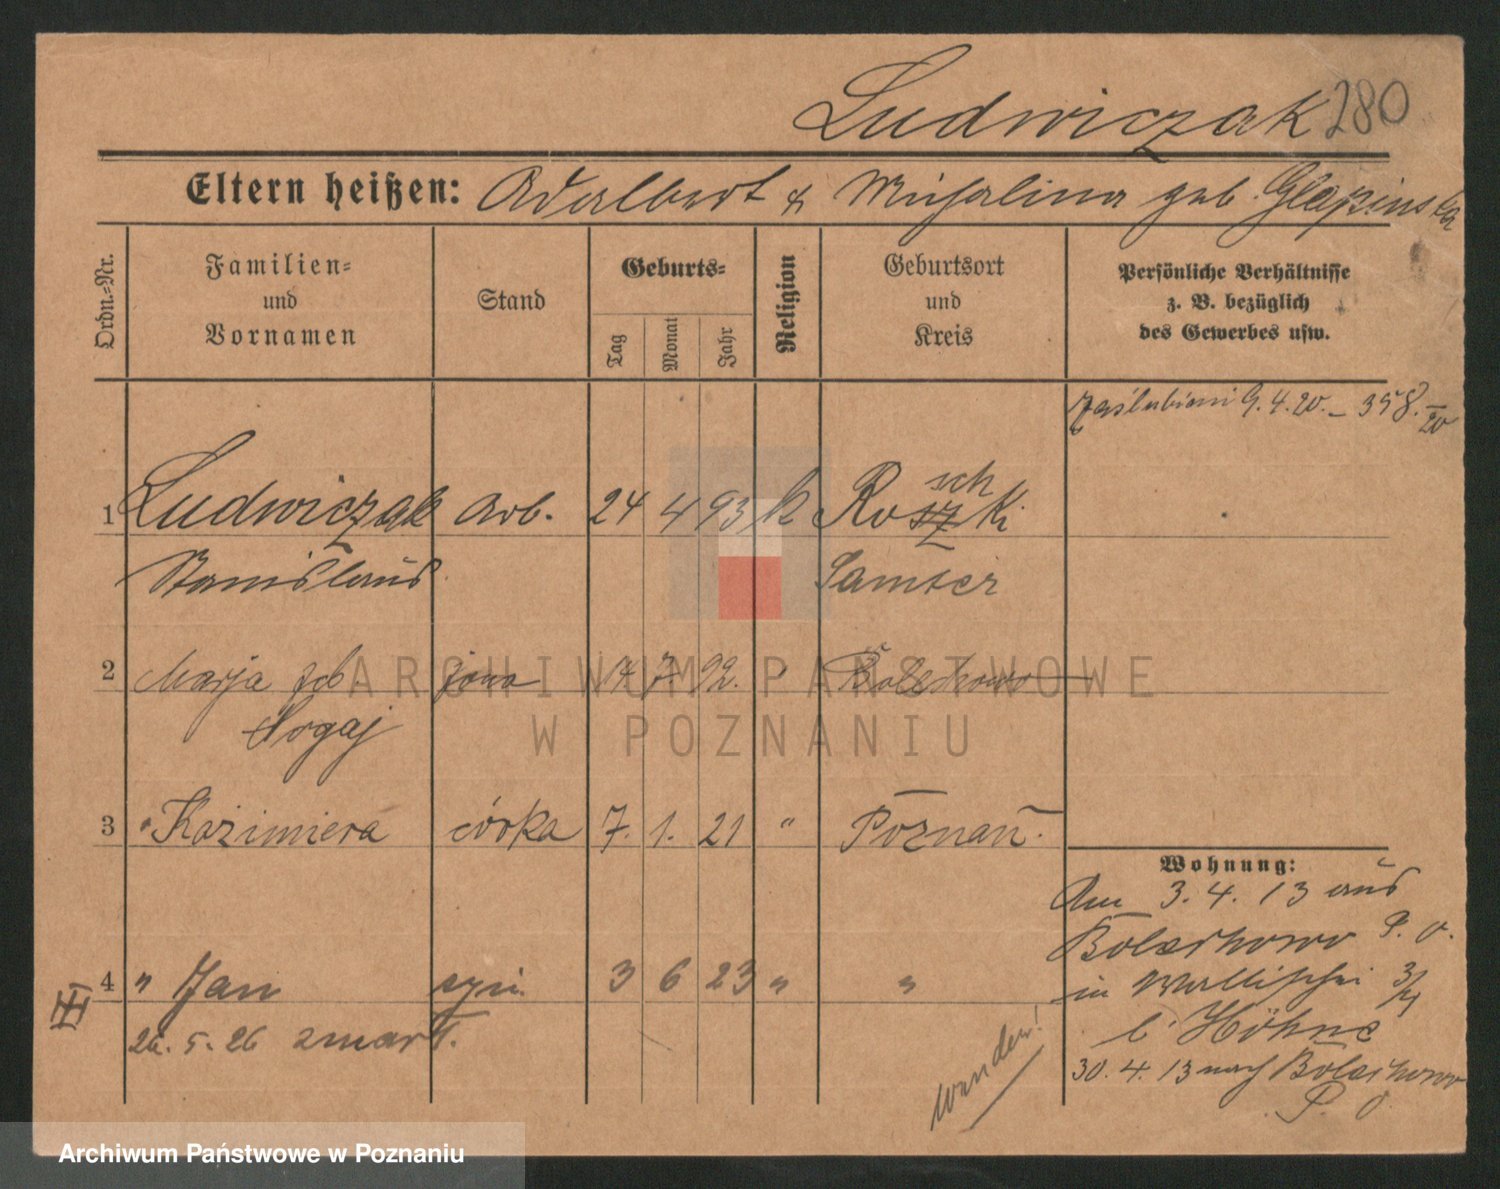 Ludwiczak 280
Eltern heißen: Adalbert & Michalina geb. Glapinska
Ordn.=Nr.
Familien=
und
Vornamen
Stand
Geburts=
Tag
Monat
Jahr
Religion
Geburtsort
und
Kreis
Persönliche Verhältnisse
z. B. bezüglich
des Gewerbes usw.
zaślubieni 9. 4. 20. – 358. – 20
1 Ludwiczak Arb. 24 4 93 k Roszki
sch
Stanislaus Samter
2 Marja żona 14 7 92. "
3 " Kazimiera córka 7. 1. 21 " Poznań.
4 " Jan syn 3 6 23 " "
26. 5. 26 zmarł.
Wohnung:
Am 3. 4. 13 aus
Bolechowo P. O.
in Wallischei 3/4
b Höhne
30. 4. 13 nach Bolechowo
P. O.
ARCHIWUM PAŃSTWOWE
W POZNANIU
Archiwum Państwowe w Poznaniu